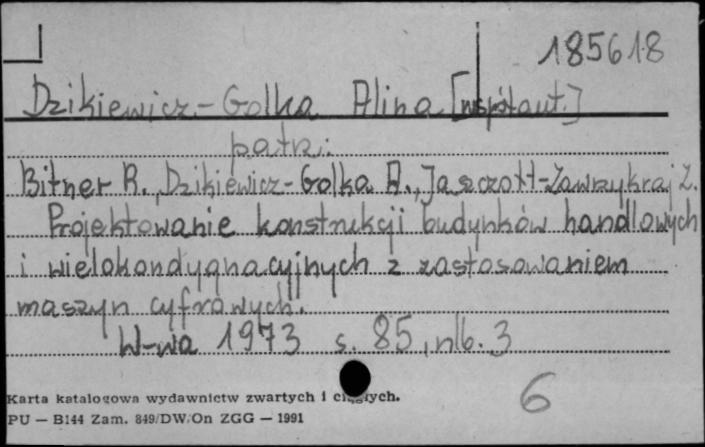 185618
Dzikiewicz-Golka Alina [współaut.]
patrz:
Bitner R., Dzikiewicz-Golka A., Jaszczott-Zawrzykraj Z.
Projektowanie konstrukcji budynków handlowych
i wielokondygnacyjnych z zastosowaniem
maszyn cyfrowych.
W-wa 1973 s. 85, nlb. 3
6
Karta katalogowa wydawnictw zwartych i ciągłych.
PU — B144 Zam. 849/DW/On ZGG — 1991